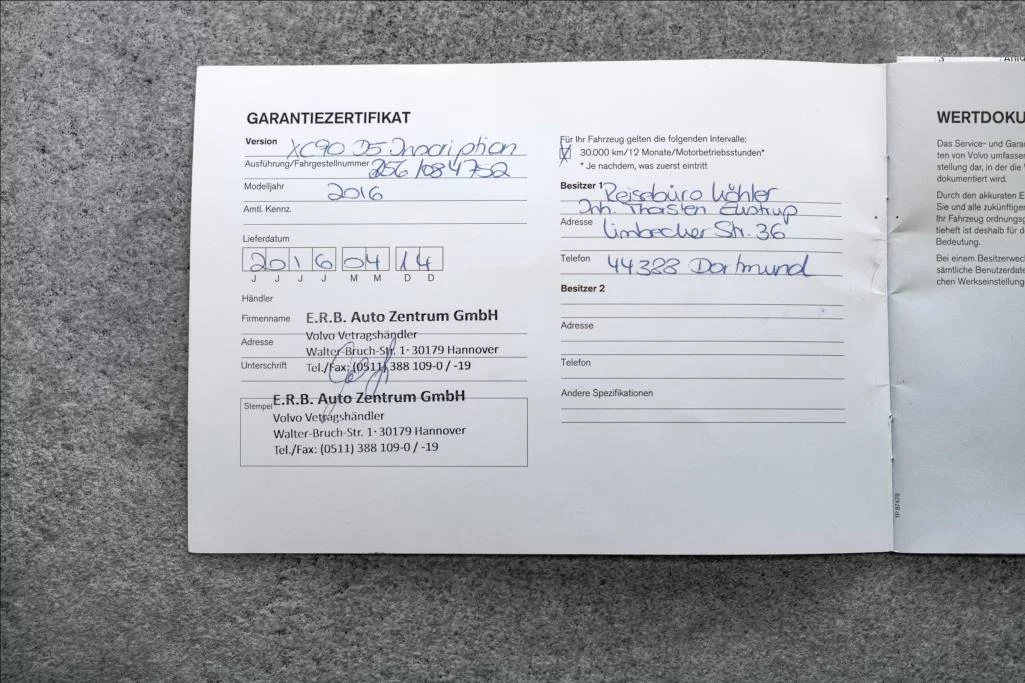 GARANTIEZERTIFIKAT
Version XC90 D5 Inscription
Ausführung/Fahrgestellnummer 256 /084752
Modelljahr 2016
Amtl. Kennz.
Lieferdatum
2016 04 14
J J J J M M D D
Händler
Firmenname E.R.B. Auto Zentrum GmbH
Volvo Vetragshändler
Adresse Walter-Bruch-Str. 1·30179 Hannover
Unterschrift Tel./Fax: (0511) 388 109-0 / -19
Stempel E.R.B. Auto Zentrum GmbH
Volvo Vetragshändler
Walter-Bruch-Str. 1·30179 Hannover
Tel./Fax: (0511) 388 109-0 / -19
Für Ihr Fahrzeug gelten die folgenden Intervalle:
30.000 km/12 Monate/Motorbetriebsstunden*
* Je nachdem, was zuerst eintritt
Besitzer 1 Reisebüro Wöhler
Inh. Thorsten
Adresse Limbecker Str. 36
Telefon 44388 Dortmund
Besitzer 2
Adresse
Telefon
Andere Spezifikationen
TP 87478
WERTDOKU
Das Service- und Garan
ten von Volvo umfassen
stellung dar, in der die
dokumentiert wird.
Durch den akkuraten E
Sie und alle zukünftige
Ihr Fahrzeug ordnungs
tieheft ist deshalb für d
Bedeutung.
Bei einem Besitzerwec
sämtliche Benutzerdate
chen Werkseinstellung